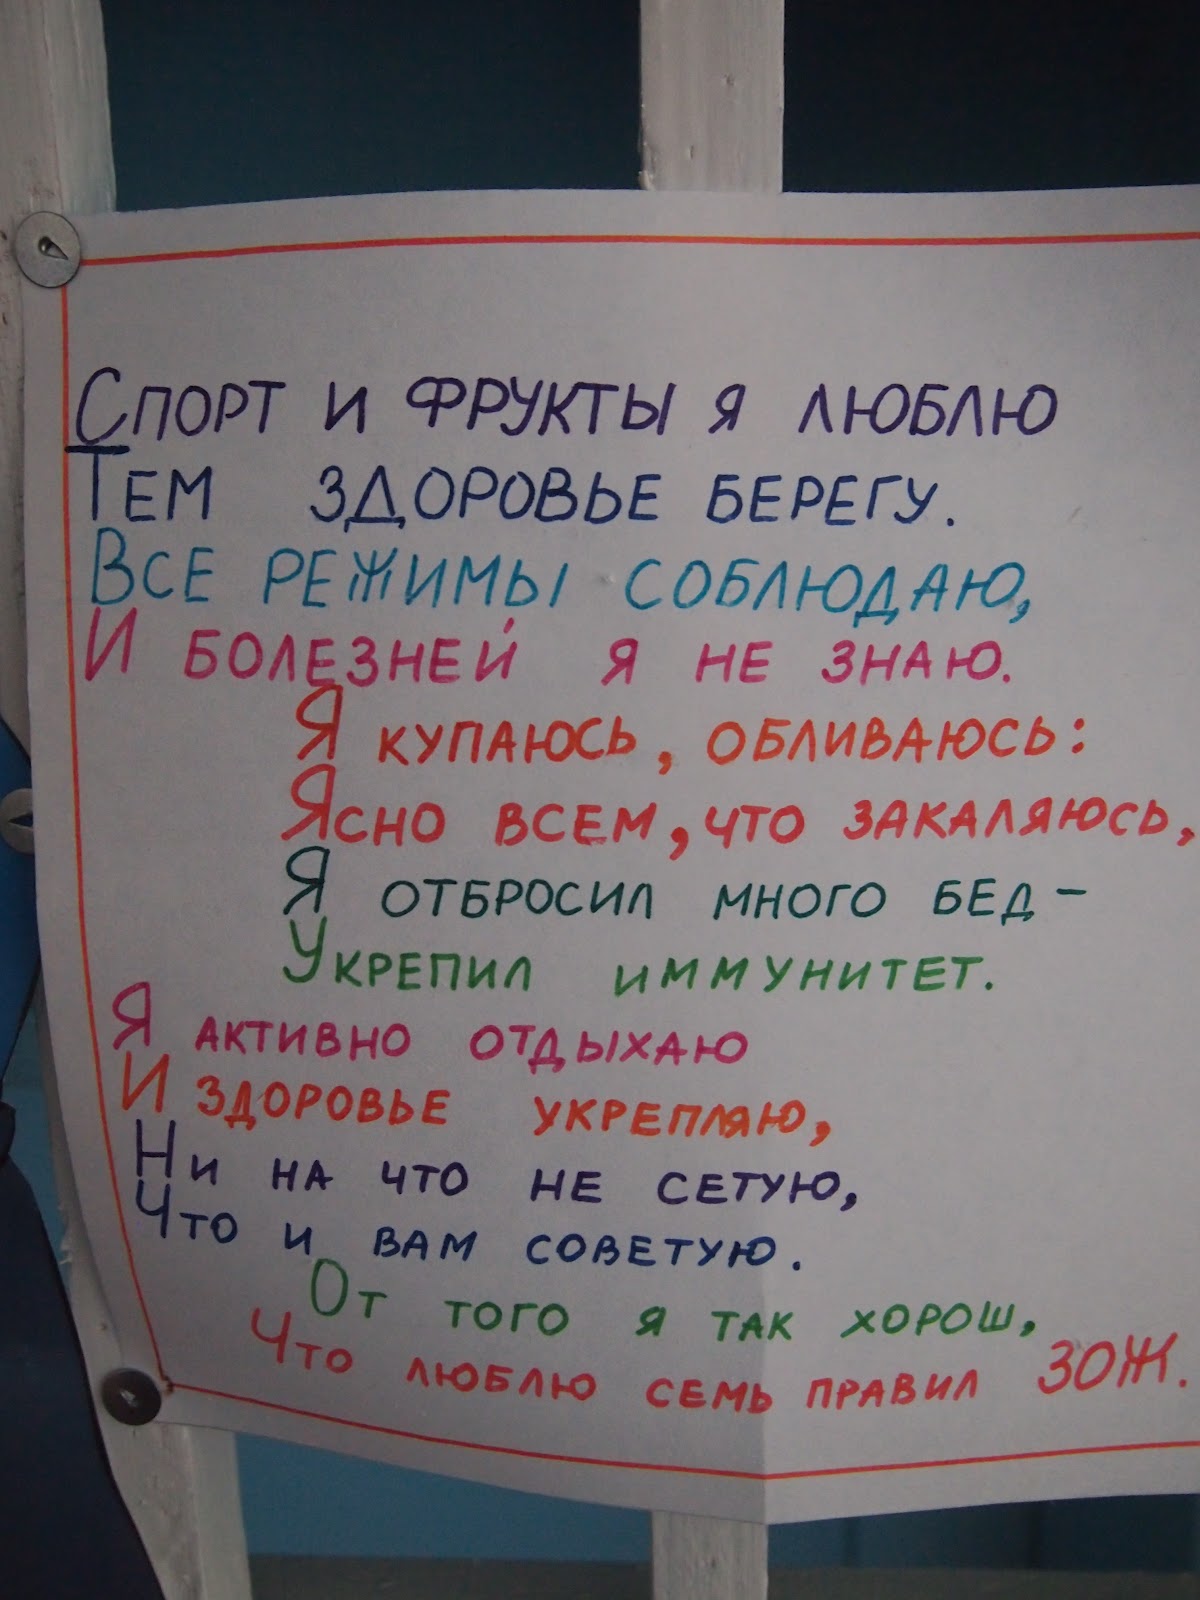 Спорт и фрукты я люблю
Тем здоровье берегу.
Все режимы соблюдаю,
И болезней я не знаю.
Я купаюсь, обливаюсь:
Ясно всем, что закаляюсь,
Я отбросил много бед-
Укрепил иммунитет.
Я активно отдыхаю
И здоровье укрепляю,
Ни на что не сетую,
Что и вам советую.
От того я так хорош,
Что люблю семь правил ЗОЖ.